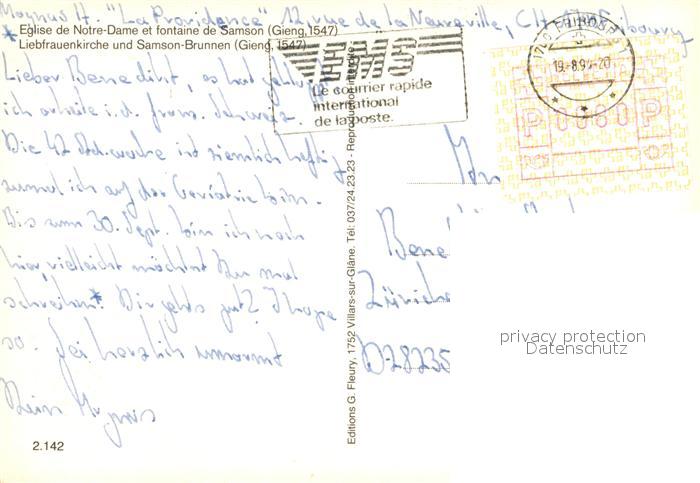 Magnus H. "La Providence" 12, rue de la Neuveville, CH Fribourg
* Eglise de Notre-Dame et fontaine de Samson (Gieng, 1547)
Liebfrauenkirche und Samson-Brunnen (Gieng, 1547)
EMS
Le courrier rapide
international
de la poste.
1700 FRIBOURG
19.-8.9 -20
P P
Lieber Benedikt, es hat geklappt
ich arbeite i.d. franz. Schweiz.
Die 42 Std. woche ist ziemlich heftig
zumal ich auf der Geriatrie bin.
Bis zum 30. Sept. bin ich noch
hier vielleicht möchtest Du mal
schreiben.* Dir gehts gut? I hope
so. Sei herzlich umarmt
Dein Magnus
2.142
Editions G. Fleury, 1752 Villars-sur-Glâne. Tél: 037/24.23.23 - Reproduction interdite
Bene
Züric
D-28235
privacy protection
Datenschutz